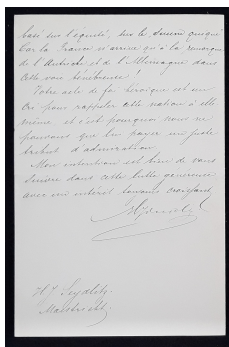 basé sur l'équité, sur le
Car la France n'arrive qu'à la remorque
de l'Autriche et de l'Allemagne dans
cette voie
Votre acte de foi héroïque est un
cri pour rappeler cette nation à elle
même et c'est pourquoi nous ne
pouvons que lui payer un juste
tribut d'admiration.
Mon intention est bien de vous
suivre dans cette lutte généreuse
avec un intérêt toujours croissant.
H. J. Seydlitz
Maestricht